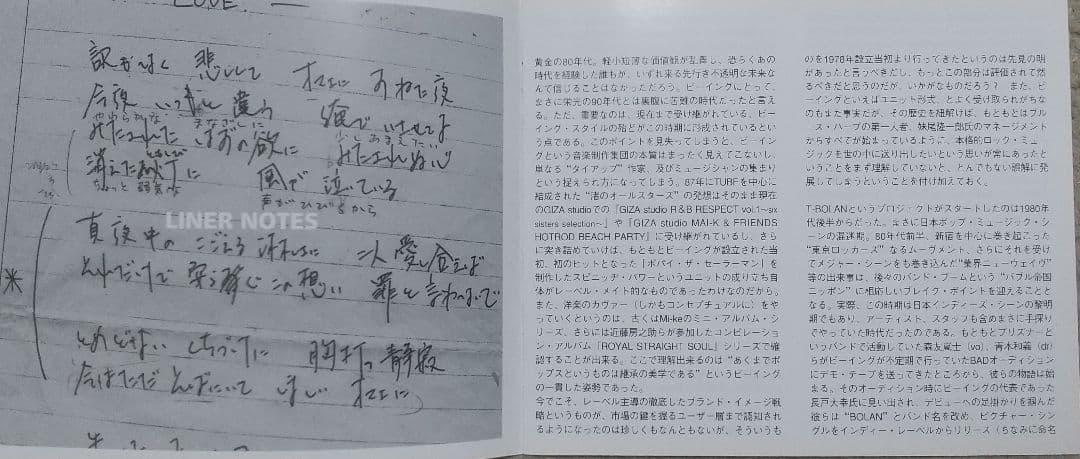 LOVE
訳もなく 悲しくて
今夜
真夜中の
二人愛し合えば
それだけで
この想い 罪と言わないで
くちづけに 胸打つ静寂
今はただ そばにいて ほしい
※
LINER NOTES
黄金の80年代。軽小短薄な価値観が乱舞し、恐らくあの
時代を経験した誰もが、いずれ来る先行き不透明な未来な
んて信じることはなかっただろう。ビーイングにとって、
まさに栄光の90年代とは裏腹に苦難の時代だったと言え
る。ただ、重要なのは、現在まで受け継がれている、ビー
イング・スタイルの殆どがこの時期に形成されているとい
う点である。このポイントを見失ってしまうと、ビーイン
グという音楽制作集団の本質はまったく見えてこないし、
単なる“タイアップ”作家、及びミュージシャンの集まり
という捉えられ方になってしまう。87年にTUBEを中心に
結成された“渚のオールスターズ”の発想はそのまま現在
のGIZA studioでの「GIZA studio R＆B RESPECT vol.1〜six
sisters selection〜」や「GIZA studio MAI-K & FRIENDS
HOTROD BEACH PARTY」に受け継がれているし、さら
に突き詰めていけば、もともとビーイングが設立された当
初、初のヒットとなった「ポパイ・ザ・セーラーマン」を
制作したスピニッヂ・パワーというユニットの成り立ち自
体がレーベル・メイト的なものであったわけなのだから。
また、洋楽のカヴァー（しかもコンセプチュアルに）をや
っていくというのは、古くはMi-keのミニ・アルバム・シ
リーズ、さらには近藤房之助らが参加したコンピレーショ
ン・アルバム「ROYAL STRAIGHT SOUL」シリーズで確
認することが出来る。ここで理解出来るのは“あくまでポ
ップスというものは継承の美学である”というビーイング
の一貫した姿勢であった。
今でこそ、レーベル主導の徹底したブランド・イメージ戦
略というものが、市場の鍵を握るユーザー層まで認知され
るようになったのは珍しくもなんともないが、そういうも
のを1978年設立当初より行ってきたというのは先見の明
があったと言うべきだし、もっとこの部分は評価されて然
るべきだと思うのだが、いかがなものだろう？ また、ビ
ーイングといえばユニット形式、とよく受け取られがちな
のもまた事実だが、その歴史を紐解けば、もともとはブル
ース・ハープの第一人者、妹尾隆一郎氏のマネージメント
からすべてが始まっているように、本格的ロック・ミュー
ジックを世の中に送り出したいという思いが常にあったと
いうことをまず理解していないと、とんでもない誤解に発
展してしまうということを付け加えておく。
T-BOLANというプロジェクトがスタートしたのは1980年
代後半からだった。まさに日本ポップ・ミュージック・シ
ーンの混迷期。80年代前半、新宿を中心に巻き起こった
“東京ロッカーズ”なるムーヴメント、さらにそれを受け
てメジャー・シーンをも巻き込んだ“業界ニューウェイヴ”
等の出来事は、後々のバンド・ブームという“バブル帝国
ニッポン”に相応しいブレイク・ポイントを迎えることと
なる。実際、この時期は日本インディーズ・シーンの黎明
期でもあり、アーティスト、スタッフも含めまさに手探り
でやっていた時代だったのである。もともとプリズナーと
いうバンドで活動していた森友嵐士（vo）、青木和義（dr）
らがビーイングが不定期で行っていたBADオーディション
にデモ・テープを送ってきたところから、彼らの物語は始
まる。そのオーディション時にビーイングの代表であった
長戸大幸氏に見い出され、デビューへの足掛かりを掴んだ
彼らは“BOLAN”とバンド名を改め、ピクチャー・シン
グルをインディー・レーベルからリリース（ちなみに命名